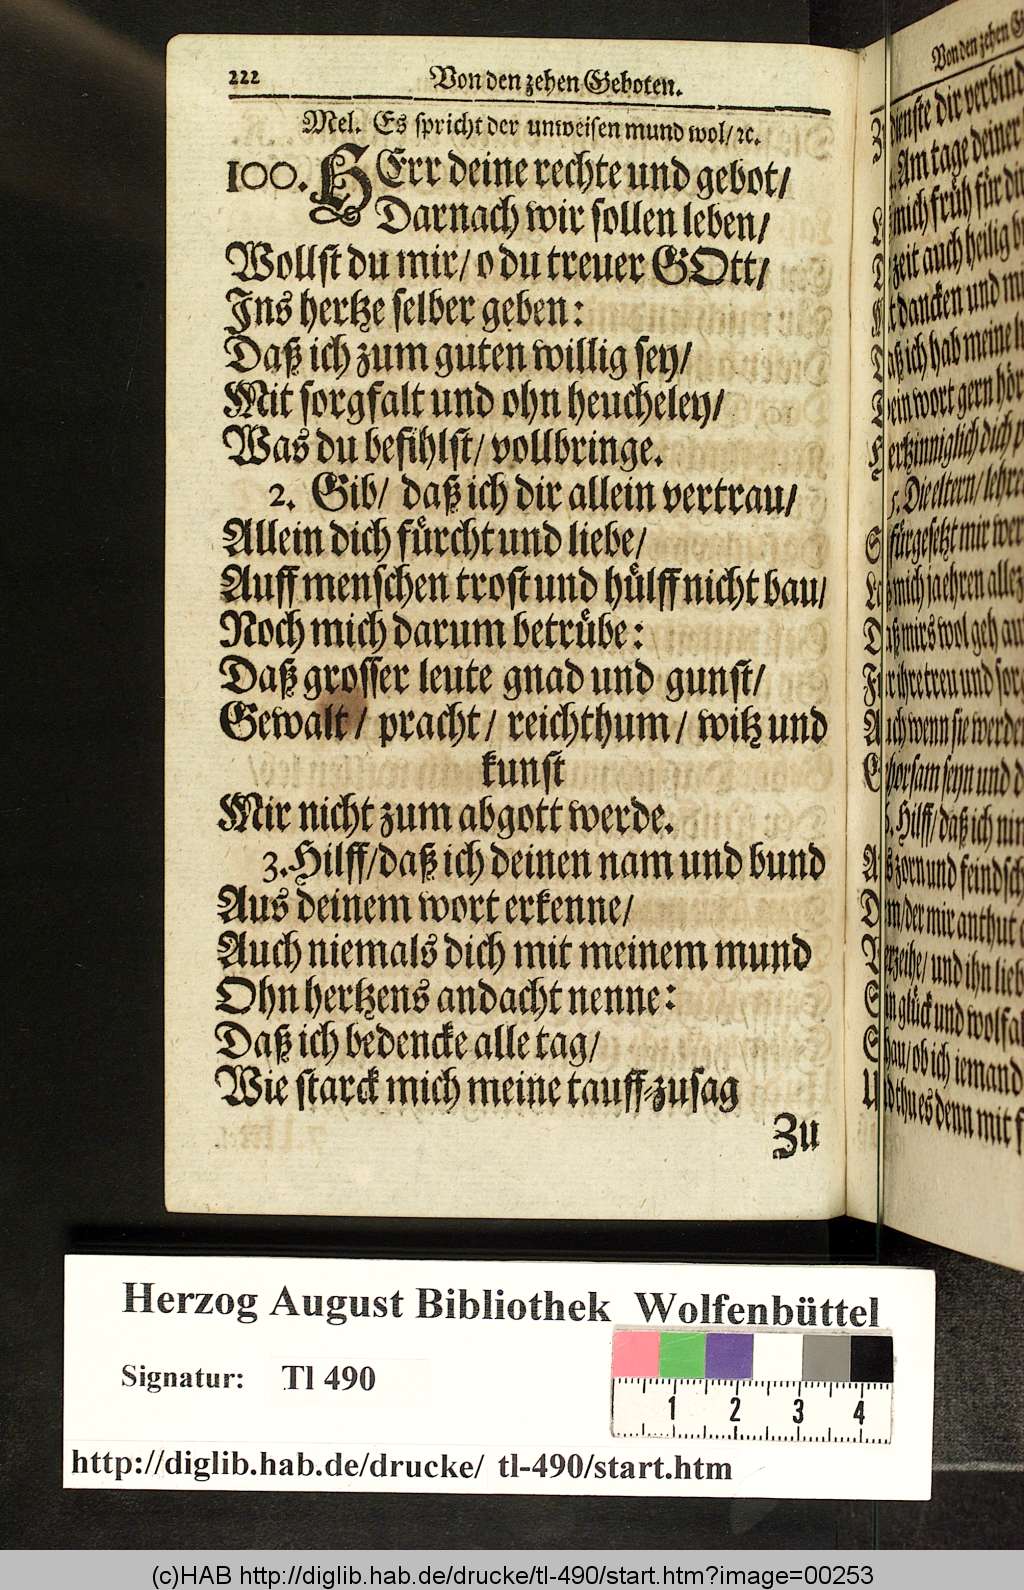 222 Von den zehen Geboten.
Mel. Es spricht der unweisen mund wol/ ꝛc.
100. HErr deine rechte und gebot/
Darnach wir sollen leben/
Wollst du mir/ o du treuer GOtt/
Ins hertze selber geben:
Daß ich zum guten willig sey/
Mit sorgfalt und ohn heucheley/
Was du befihlst/ vollbringe.
2. Gib/ daß ich dir allein vertrau/
Allein dich fürcht und liebe/
Auff menschen trost und hülff nicht bau/
Noch mich darum betrübe:
Daß grosser leute gnad und gunst/
Gewalt/ pracht/ reichthum/ witz und
kunst
Mir nicht zum abgott werde.
3. Hilff/ daß ich deinen nam und bund
Aus deinem wort erkenne/
Auch niemals dich mit meinem mund
Ohn hertzens andacht nenne:
Daß ich bedencke alle tag/
Wie starck mich meine tauff-zusag
Zu
Von den zehen
dienste dir verbind
Am tage deiner
mich früh für
zeit auch heilig
dancken und
ich hab meine
wort gern
dich
5. Die eltern/ lehre
fürgesetzt mir
mich ja ehren
mirs wol geh
ihre treu und
wenn sie werde
und
Hilff/ daß ich
zorn und
der mir anthut
und ihn lieb
glück und
ob ich iemand
thu es denn mit
Herzog August Bibliothek Wolfenbüttel
Signatur: Tl 490
1 2 3 4
http://diglib.hab.de/drucke/ tl-490/start.htm
(c)HAB http://diglib.hab.de/drucke/tl-490/start.htm?image=00253